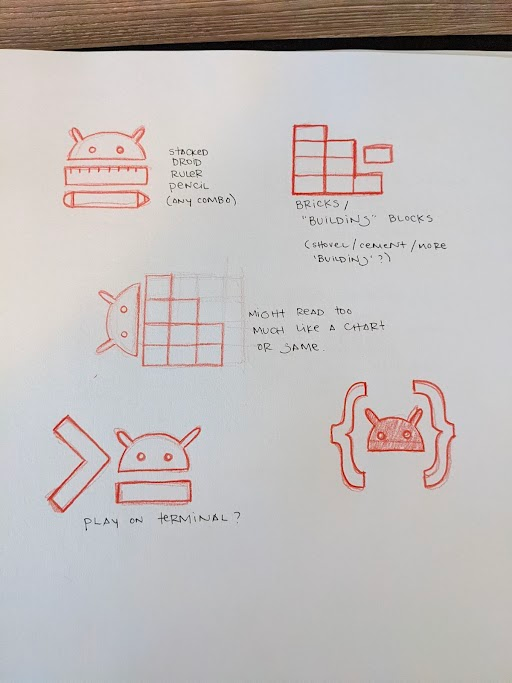 STACKED
DROID
RULER
PENCIL
(ANY COMBO)
BRICKS/
"BUILDING" BLOCKS
(SHOVEL/CEMENT/MORE
'BUILDING'?)
MIGHT READ TOO
MUCH LIKE A CHART
OR GAME.
PLAY ON TERMINAL?